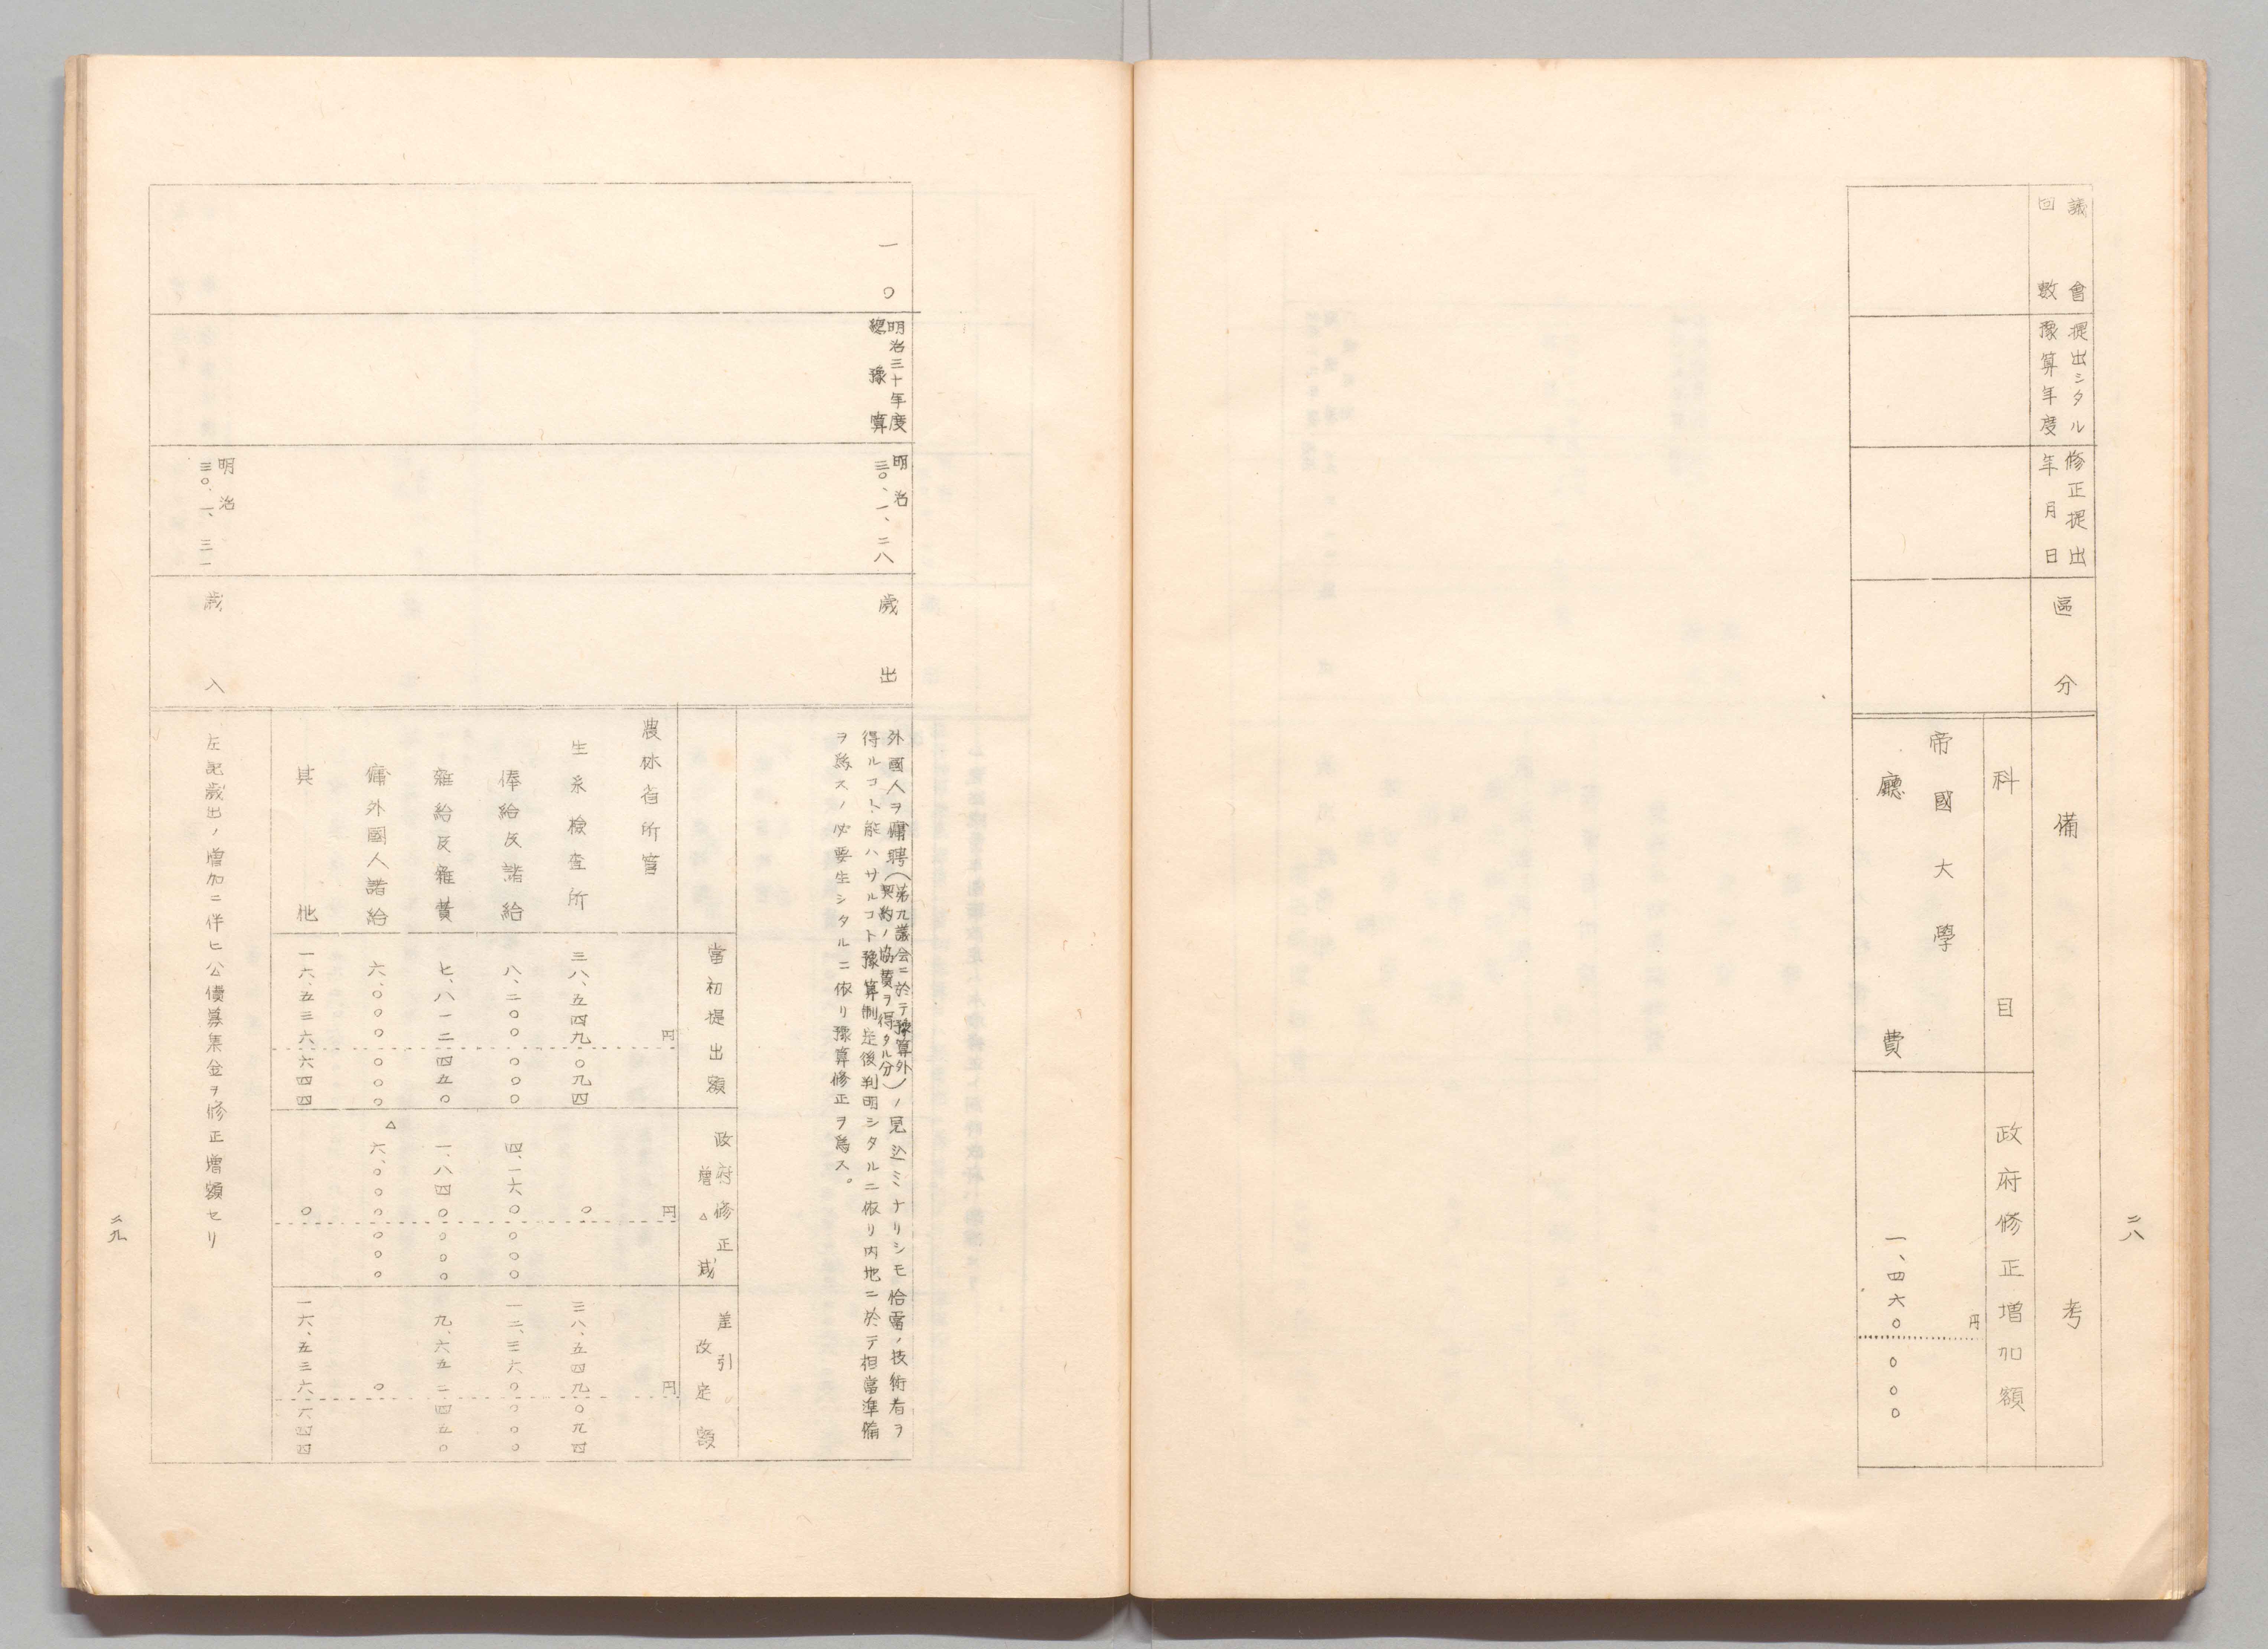 二八
議會
回數
提出シタル
豫算年度
修正提出
年月日
區分
備考
科目
政府修正增加額
円
帝國大學
廳費
一、四六〇 〇〇〇
一〇
明治三十年度
總豫算
明治
三〇、一、二八
歲出
外國人ヲ傭聘(第九議会ニ於テ豫算外ノ
契約ノ協贊ヲ得タル分)ノ見込ミナリシモ恰當ノ技術者ヲ
得ルコト能ハサルコト豫算制定後判明シタルニ依リ内地ニ於テ相當準備
ヲ為スノ必要生シタルニ依リ豫算修正ヲ為ス。
當初提出額
政府修正
增△減
差引
改定額
農林省所管
円
円
円
生糸檢查所
三八、五四九 〇九四
〇
三八、五四九 〇九四
俸給及諸給
八、二〇〇 〇〇〇
四、一六〇 〇〇〇
一二、三六〇 〇〇〇
雜給及雜費
七、八一二 四五〇
一、八四〇 〇〇〇
九、六五二 四五〇
傭外國人諸給
六、〇〇〇 〇〇〇
△六、〇〇〇 〇〇〇
〇
其他
一六、五三六 六四四
〇
一六、五三六 六四四
明治
三〇、一、三一
歲入
左記歲出ノ增加ニ伴ヒ公債募集金ヲ修正增額セリ
二九